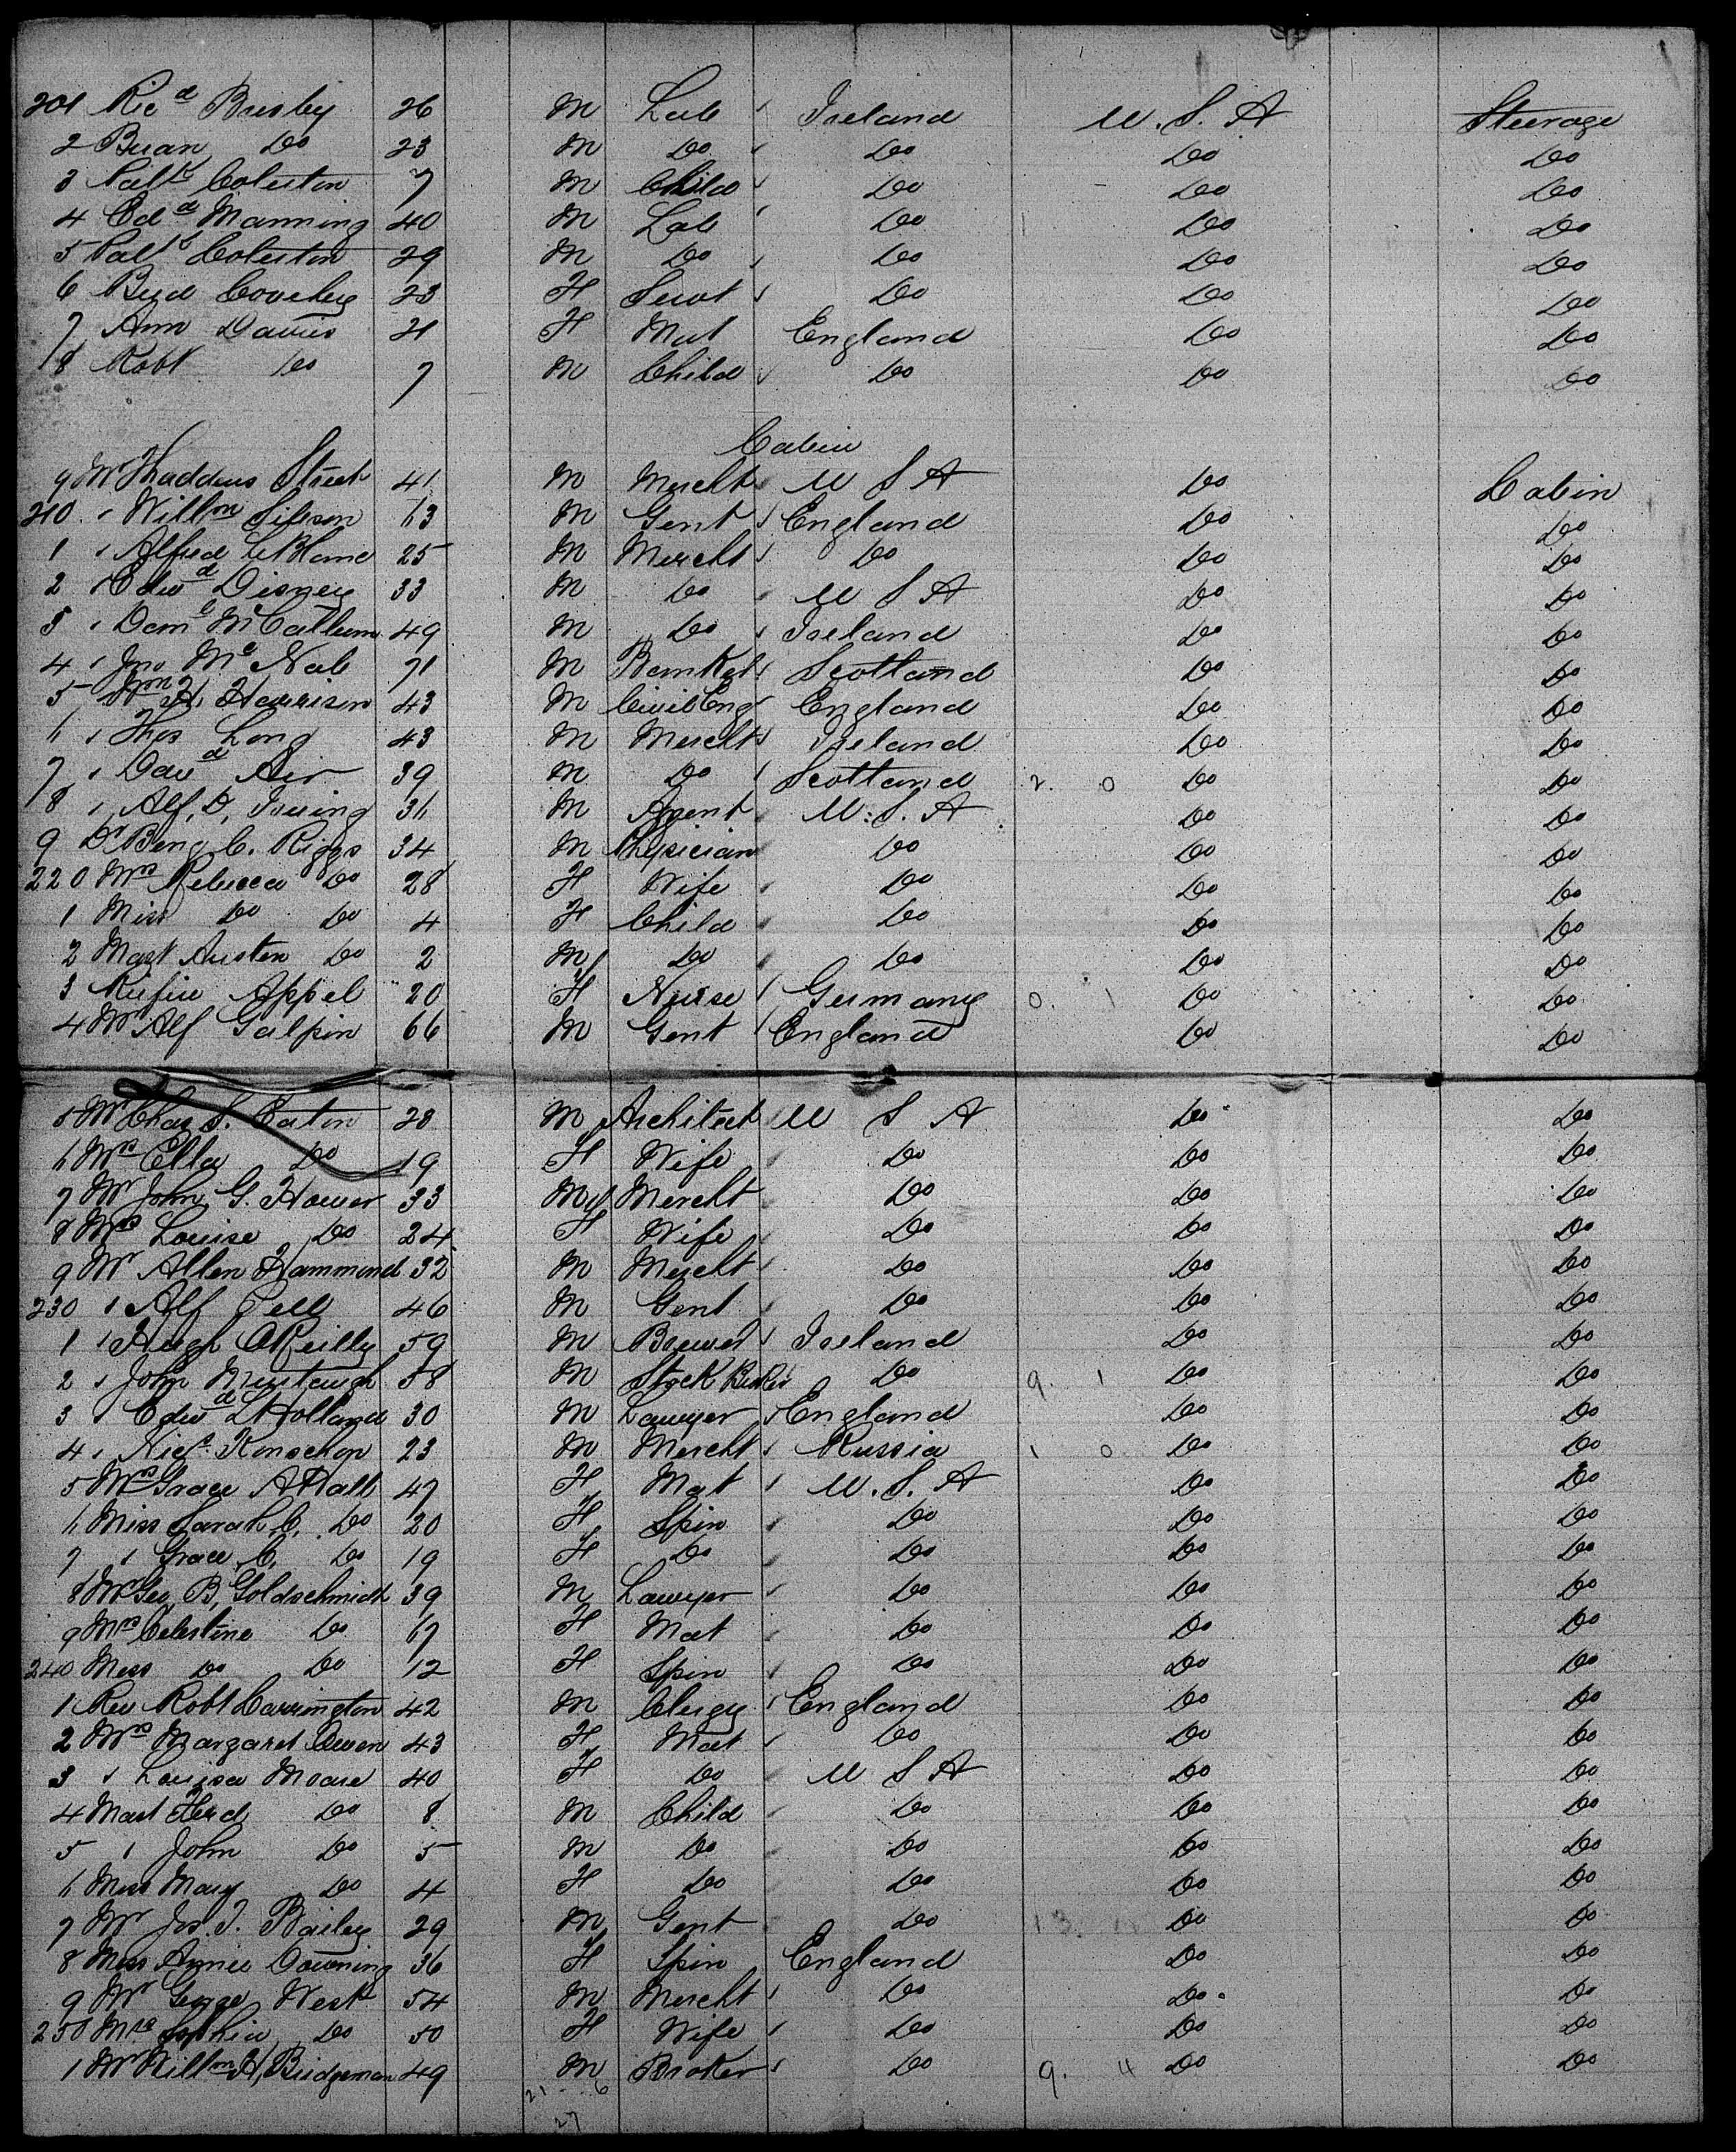 201 Ricd Busby 26 M Lab Ireland U.S.A Steerage
2 Do 23 M Do Do Do Do
3 Patk Coleston 7 M Child Do Do Do
4 Edd Manning 40 M Lab Do Do Do
5 Patk Coleston 29 M Do Do Do Do
6 Bigd 23 F Servt Do Do Do
7 Ann Davies 21 F Mat England Do Do
8 Robt Do 7 M Child Do Do Do
Cabin
9 Mr Thaddeus Street 41 M Mercht U S A Do Cabin
210 " Willm Sibson 63 M Gent England Do Do
1 " Alfred 25 M Mercht Do Do Do
2 " Edwd Disney 33 M Do U S A Do Do
3 " Danl McCallum 49 M Do Ireland Do Do
4 " Jno Mc Nab 71 M Scotland Do Do
5 Wm H. Harrison 43 M Civil Eng England Do Do
6 " Thos Long 43 M Mercht Ireland Do Do
7 " Davd Air 39 M Do Scotland 2. 0 Do Do
8 " Alf. D. Irving 36 M Agent U.S.A Do Do
9 Dr Benj C. Riggs 34 M Physician Do Do Do
220 Mrs Rebecca Do 28 F Wife Do Do Do
1 Miss Do Do 4 F Child Do Do Do
2 Mast Austen Do 2 M Do Do Do Do
3 Appel 20 F Nurse Germany 0. 1 Do Do
4 Mr Alf Galpin 66 M Gent England Do Do
5 Mr Chas S. Eaton 28 M Architect U S A Do Do
6 Mrs Ella Do 19 F Wife Do Do Do
7 Mr John G. Hower 33 M Mercht Do Do Do
8 Mrs Louise Do 24 F Wife Do Do Do
9 Mr Allen Hammond 32 M Mercht Do Do Do
230 " Alf Pell 46 M Gent Do Do Do
1 " Hugh O'Reilly 59 M Brewer Ireland Do Do
2 " John Murtaugh 58 M Stock Do 9. 1 Do Do
3 " Edwd L Holland 30 M Lawyer England Do Do
4 " 23 M Mercht Russia 1 0. Do Do
5 Mrs Grace A Hall 47 F Mat U.S.A Do Do
6 Miss Sarah C. Do 20 F Spin Do Do Do
7 " Grace C. Do 19 F Do Do Do Do
8 Mr Geo. B. Goldschmidt 39 M Lawyer Do Do Do
9 Mrs Celestine Do 67 F Mat Do Do Do
240 Miss Do Do 12 F Spin Do Do Do
1 Rev Robt Carrington 42 M Clergy England Do Do
2 Mrs Margaret Owen 43 F Mat Do Do Do
3 " Louisa Moore 40 F Do U S A Do Do
4 Mast Fred Do 8 M Child Do Do Do
5 " John Do 5 M Do Do Do Do
6 Miss Mary Do 4 F Do Do Do Do
7 Mr Jos. T. Bailey 29 M Gent Do 13. Do Do
8 Miss Annie Downing 36 F Spin England Do Do
9 Mr George West 54 M Mercht Do Do Do
250 Mrs Sophia Do 50 F Wife Do Do Do
1 Mr Willm H. Bridgeman 49 M Broker Do 9. 4 Do Do
21 - 6
27